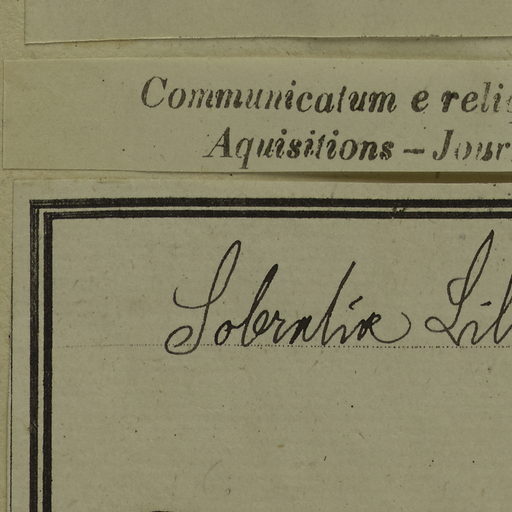 Communicatum e reli
Aquisitions – Jour
Sobralia Lil